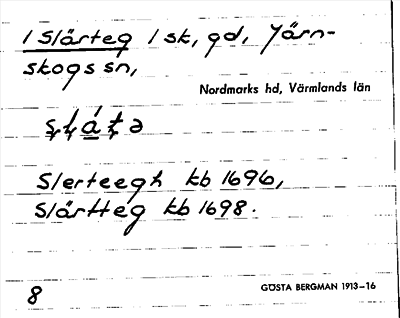 1 Slärteg 1 sk, gd, Järn-
skogs sn,
Nordmarks hd, Värmlands län
Slerteegh kb 1696,
Slärtteg kb 1698.
8
GÖSTA BERGMAN 1913–16